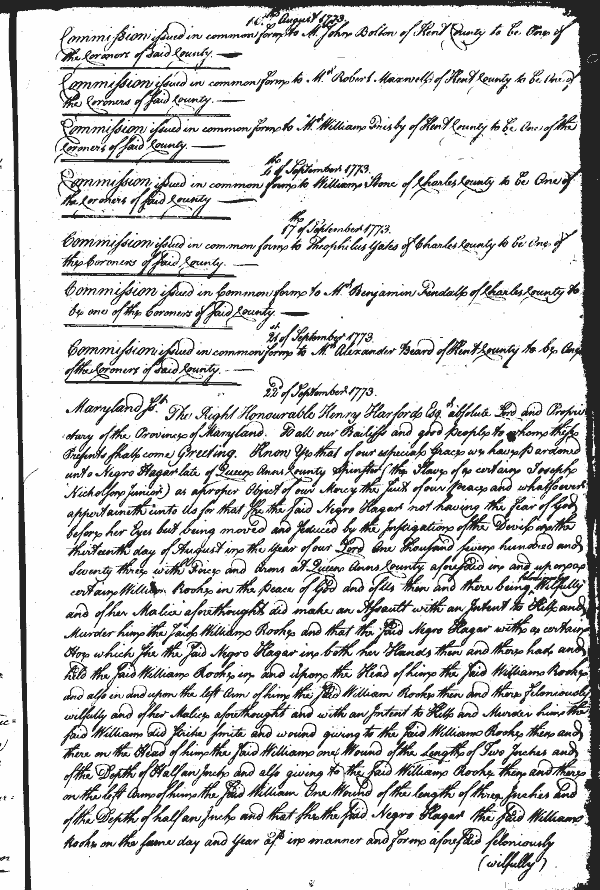 16th August 1773
Commission issued in common form to Mr. John Bolton of Kent County to be One of
the Coroners of said County.
Commission issued in common form to Mr Robert Maxwell of Kent County to be One of
the Coroners of said County.
Commission issued in common form to Mr William Frisby of Kent County to be One of the
Coroners of said County.
6th of September 1773
Commission issued in common form to William Stone of Charles County to be One of
the Coroners of said County
17th of September 1773.
Commission issued in common form to Theophilus Yates of Charles County to be One of
the Coroners of said County.
Commission issued in Common form to Mr Benjamin Fendall of Charles County to
be one of the Coroners of said County.
21st of September 1773
Commission issued in common form to Mr Alexander Beard of Kent County to be One
of the Coroners of said County.
22d of September 1773.
Maryland sst. The Right Honourable Henry Harford Esqr absolute Lord and Proprie
tary of the Province of Maryland. To all our Bailiffs and good people to whom these
Presents shall come Greeting. Know Ye that of our especial Grace we have Pardoned
unto Negro Hagar late of Queen Anns County Spinster (the Slave of a certain Joseph
Nicholson junior) as a proper Object of our Mercy the Suit of our Peace and whatsoever
appertaineth unto Us for that she the said Negro Hagar not having the Fear of God
before her Eyes but being moved and seduced by the Instigation of the Devil on the
thirteenth day of August in the Year of our Lord One Thousand seven hundred and
Seventy three with Force and Arms at Queen Anns County aforesaid in and upon a
certain William Rooke in the peace of God and of Us then and there being Wilfully
and of her Malice aforethought did make an Assault with an Intent to Kill and
Murder him the said William Rooke and that the said Negro Hagar with a certain
Hoe which she the said Negro Hagar in both her Hands then and there had and
held the said William Rooke in and upon the Head of him the said William Rooke
and also in and upon the left Arm of him the said William Rooke then and there feloniously
wilfully and of her Malice aforethought and with an Intent to Kill and Murder him the
said William did strike smite and wound giving to the said William Rooke then and
there on the Head of him the said William one Wound of the Length of Two Inches and
of the Depth of Half an Inch and also giving to the said William Rooke then and there
on the left Arm of him the said William One Wound of the length of three Inches and
of the Depth of half an Inch and that she the said Negro Hagar the said William
Rooke on the same day and Year afd. in manner and form aforesaid feloniously
(wilfully)